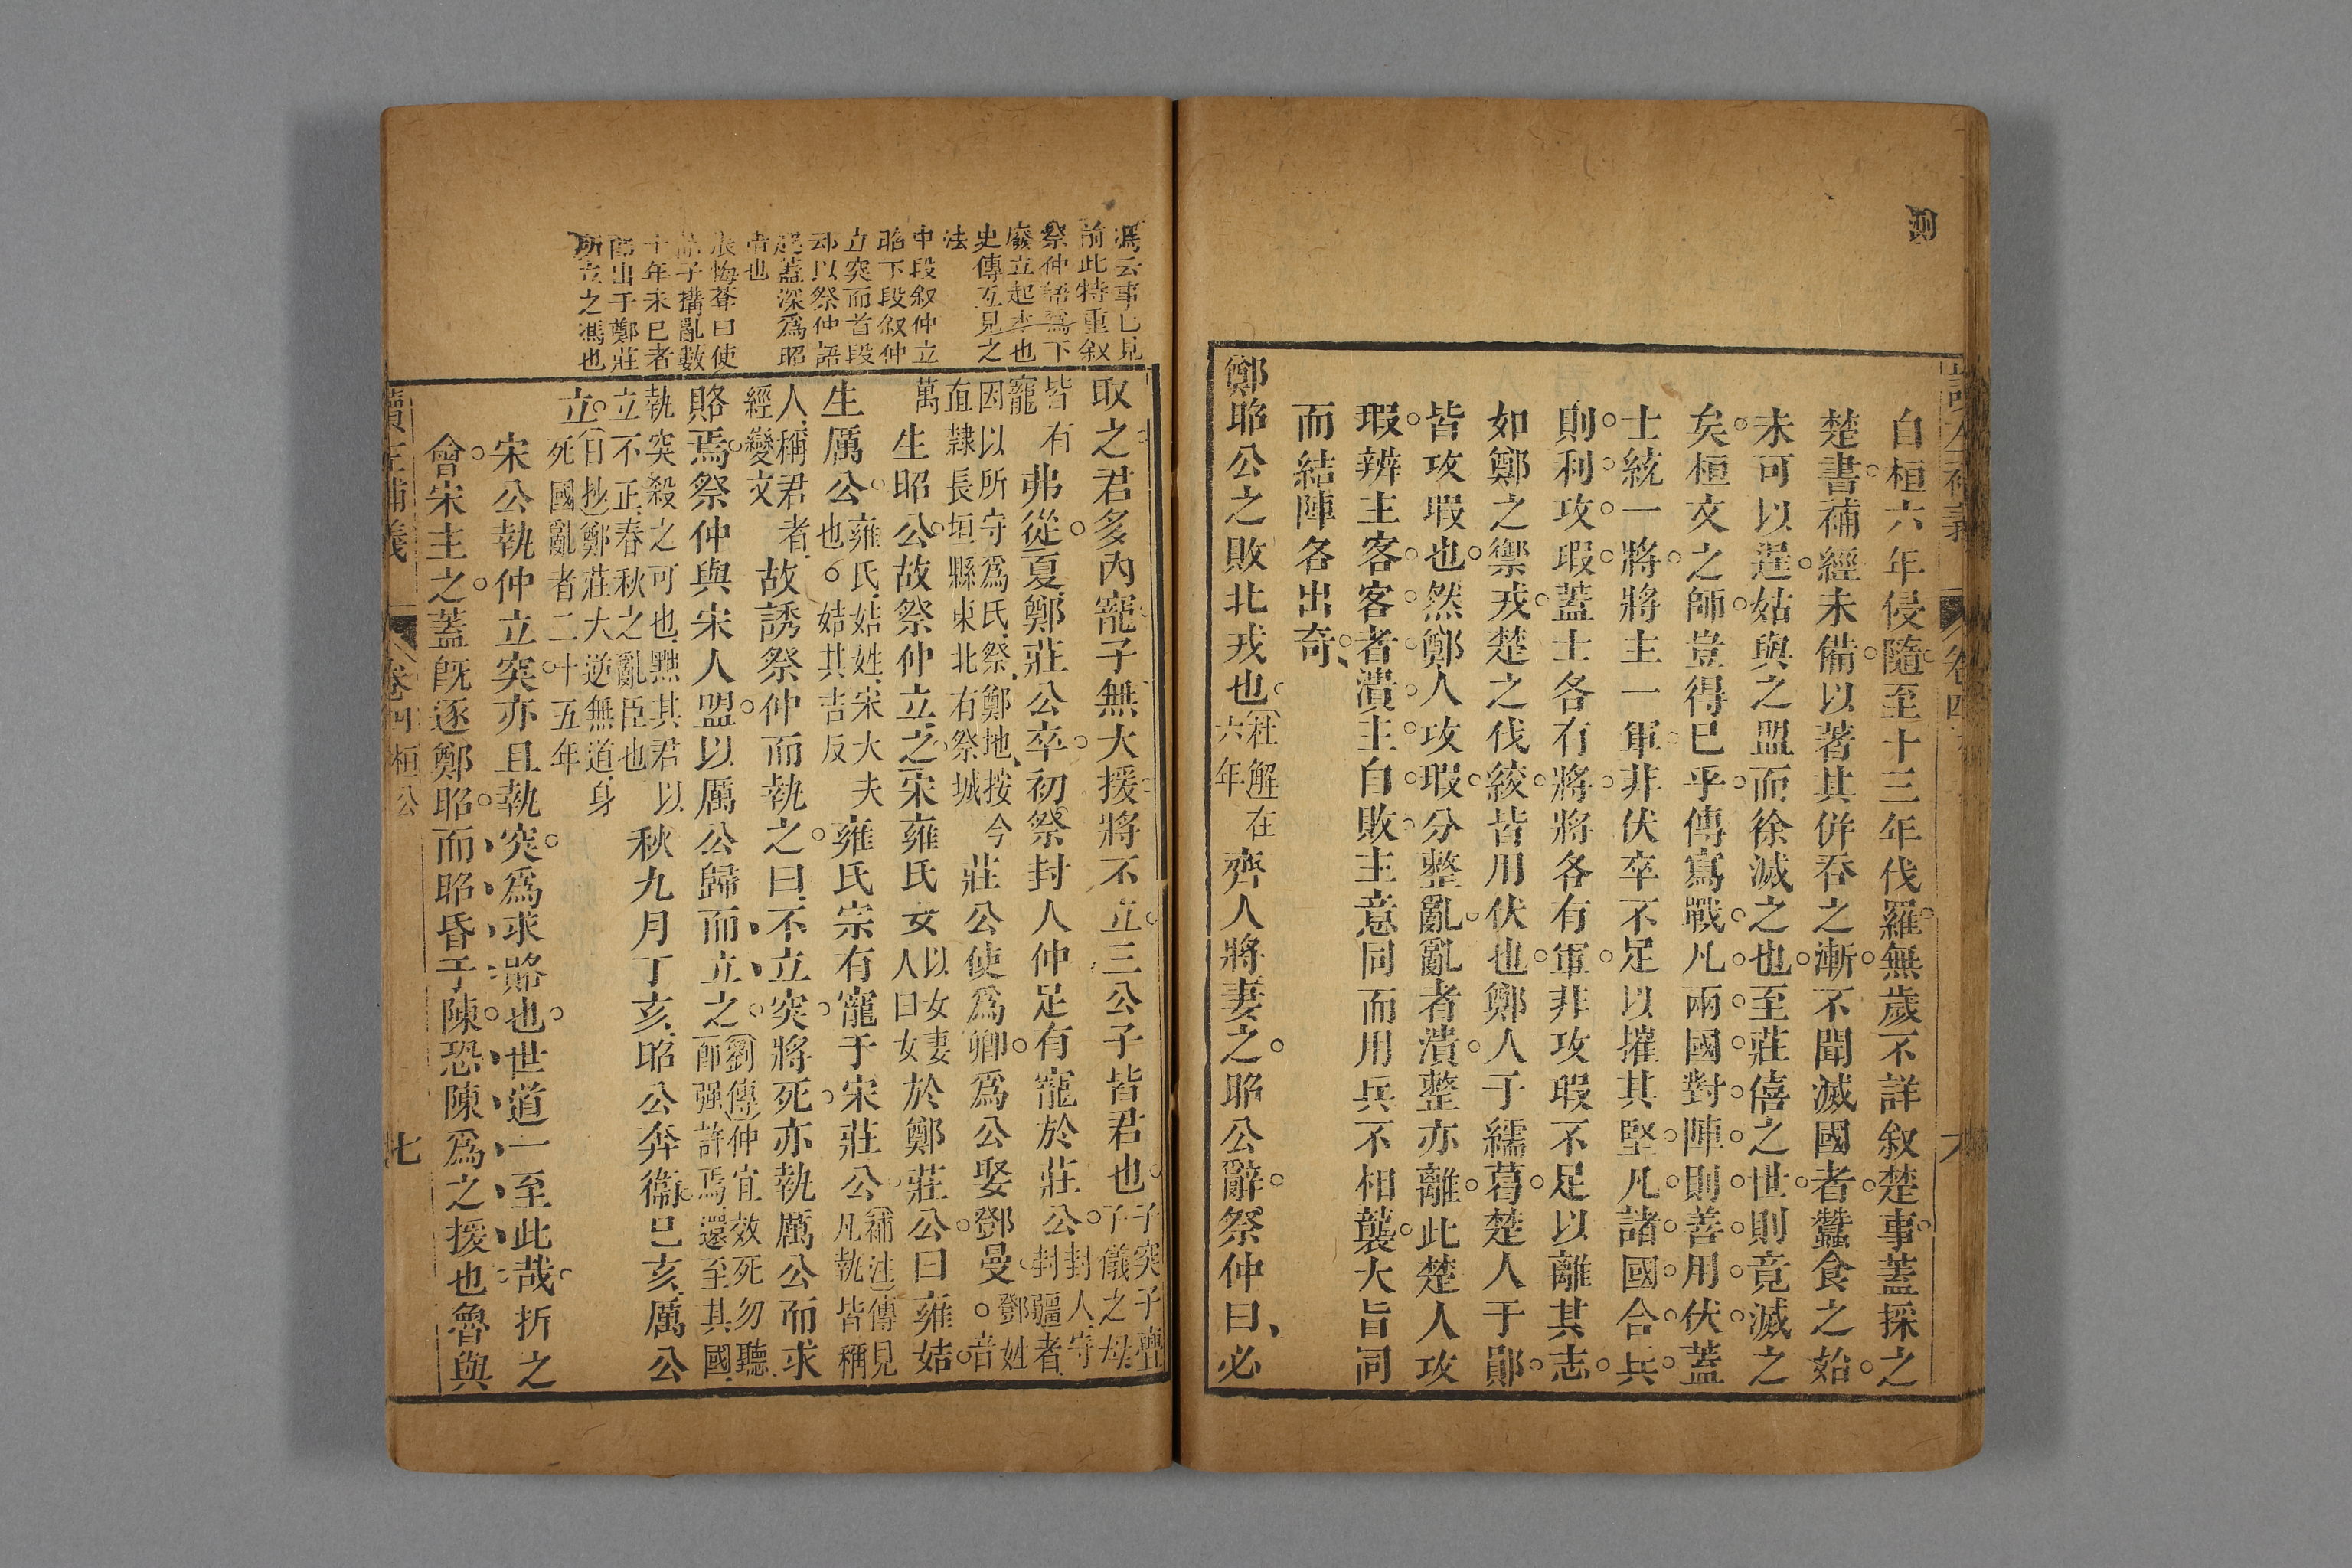 自桓六年侵隨至十三年伐羅無歲不詳叙楚事蓋採之
楚書補經未備以著其併吞之漸不聞滅國者蠶食之始
未可以逞姑與之盟而徐滅之也至莊僖之世則竟滅之
矣桓文之師豈得已乎傳寫戰凡兩國對陣則善用伏蓋
士統一將將主一軍非伏卒不足以摧其堅凡諸國合兵
則利攻瑕蓋士各有將將各有軍非攻瑕不足以離其志
如鄭之禦戎楚之伐絞皆用伏也鄭人于繻葛楚人于鄖
皆攻瑕也然鄭人攻瑕分整亂亂者潰整亦離此楚人攻
瑕辨主客客者潰主自敗主意同而用兵不相襲大旨同
而結陣各出奇
鄭昭公之敗北戎也杜解在六年齊人將妻之昭公辭祭仲曰必
馮云事已見
前此特重叙
祭仲語爲下
廢立起本也
史傳互見之
法
中段叙仲立
昭下段叙仲
立突而首段
却以祭仲語
起蓋深爲昭
惜也
張悔菴曰使
諸子搆亂數
十年未已者
卽出于鄭莊
所立之馮也
取之君多內寵子無大援將不立三公子皆君也子突子亹子儀之母
皆有寵弗從夏鄭莊公卒初祭封人仲足有寵於莊公封人守封疆者
因以所守爲氏祭鄭地按今直隸長垣縣東北有祭城莊公使爲卿爲公娶鄧曼鄧姓○音
萬生昭公故祭仲立之宋雍氏女以女妻人曰女於鄭莊公曰雍姞
生厲公雍氏姞姓宋大夫也○姞其吉反雍氏宗有寵于宋莊公補注傳見凡執皆稱
人稱君者經變文故誘祭仲而執之曰不立突將死亦執厲公而求
賂焉祭仲與宋人盟以厲公歸而立之劉傳仲宜效死勿聽卽强許焉還至其國
執突殺之可也黜其君以立不正春秋之亂臣也秋九月丁亥昭公奔衞已亥厲公
立日抄鄭莊大逆無道身死國亂者二十五年
宋公執仲立突亦且執突爲求賂也世道一至此哉折之
會宋主之蓋旣逐鄭昭而昭昏于陳恐陳爲之援也魯與
卷四
桓公
七